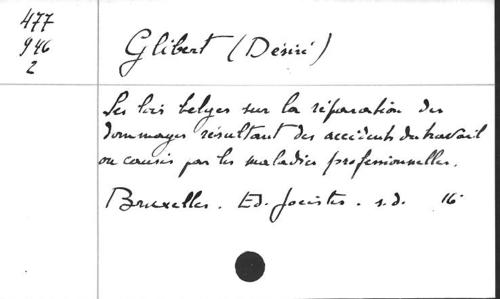 477
946
2
Glibert (Désiré)
Les lois belges sur la réparation des
dommages résultant des accidents du travail
ou causés par les maladies professionnelles.
Bruxelles. Ed. Jocistes. s.d. 16°